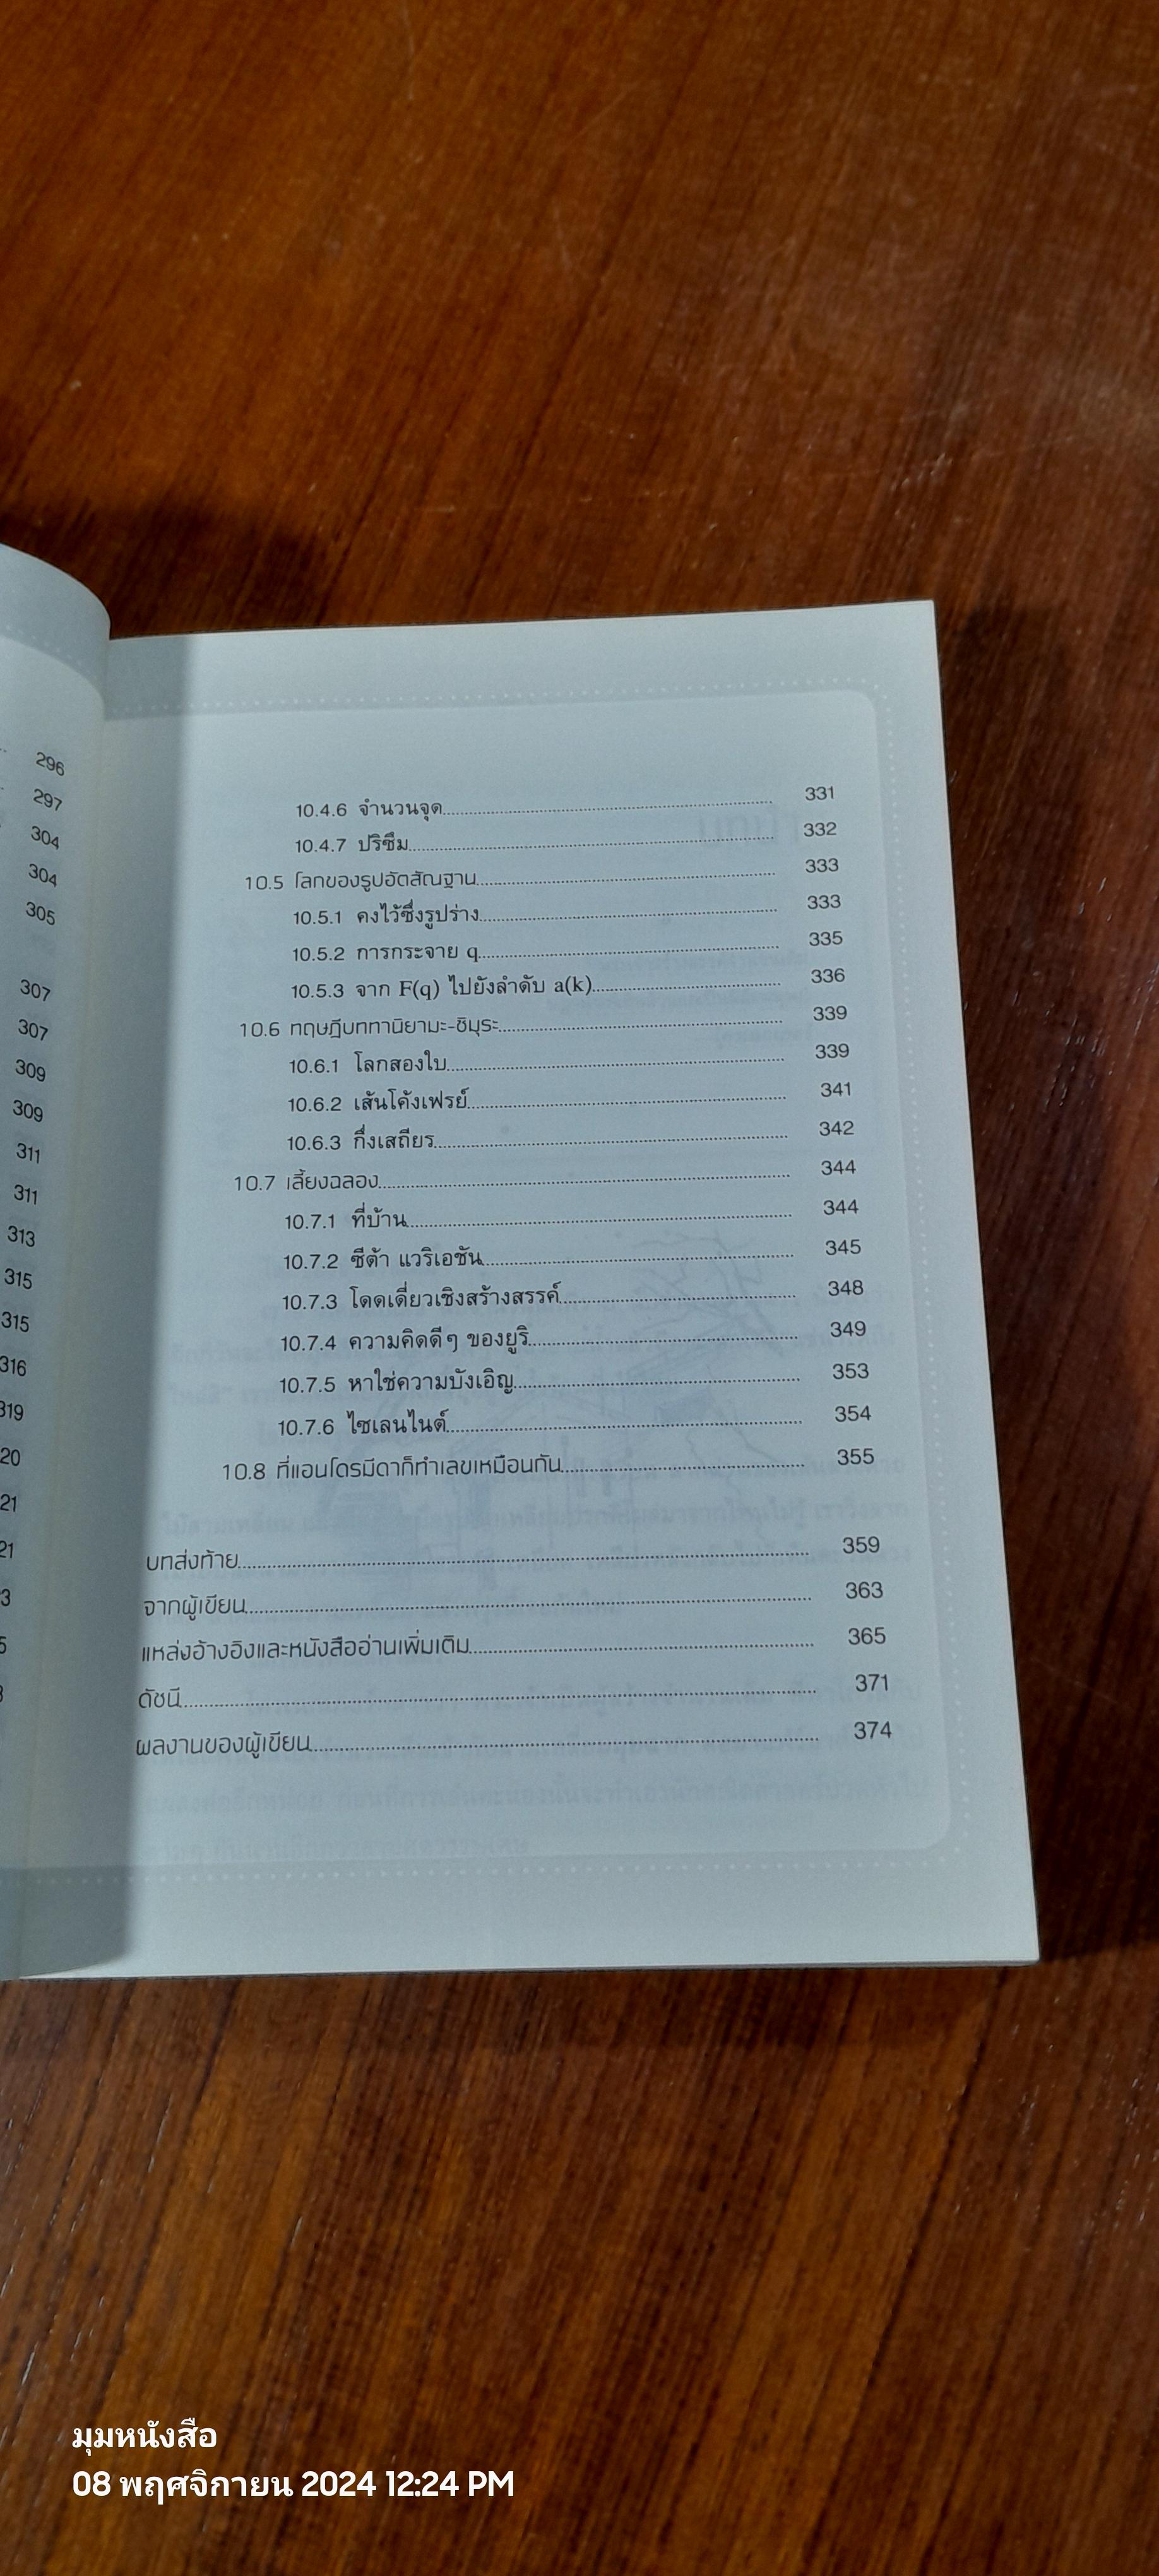 296
297
304
304
305
307
307
309
309
311
311
313
315
315
316
319
20
21
21
3
5
10.4.6 จำนวนจุด 331
10.4.7 ปริซึม 332
10.5 โลกของรูปอัตสัณฐาน 333
10.5.1 คงไว้ซึ่งรูปร่าง 333
10.5.2 การกระจาย q 335
10.5.3 จาก F(q) ไปยังลำดับ a(k) 336
10.6 ทฤษฎีบททานิยามะ-ชิมุระ 339
10.6.1 โลกสองใบ 339
10.6.2 เส้นโค้งเฟรย์ 341
10.6.3 กึ่งเสถียร 342
10.7 เลี้ยงฉลอง 344
10.7.1 ที่บ้าน 344
10.7.2 ซีต้า แวริเอชัน 345
10.7.3 โดดเดี่ยวเชิงสร้างสรรค์ 348
10.7.4 ความคิดดีๆ ของยูริ 349
10.7.5 หาใช่ความบังเอิญ 353
10.7.6 ไซเลนไนต์ 354
10.8 ที่แอนโดรมีดาก็ทำเลขเหมือนกัน 355
บทส่งท้าย 359
จากผู้เขียน 363
แหล่งอ้างอิงและหนังสืออ่านเพิ่มเติม 365
ดัชนี 371
ผลงานของผู้เขียน 374
มุมหนังสือ
08 พฤศจิกายน 2024 12:24 PM